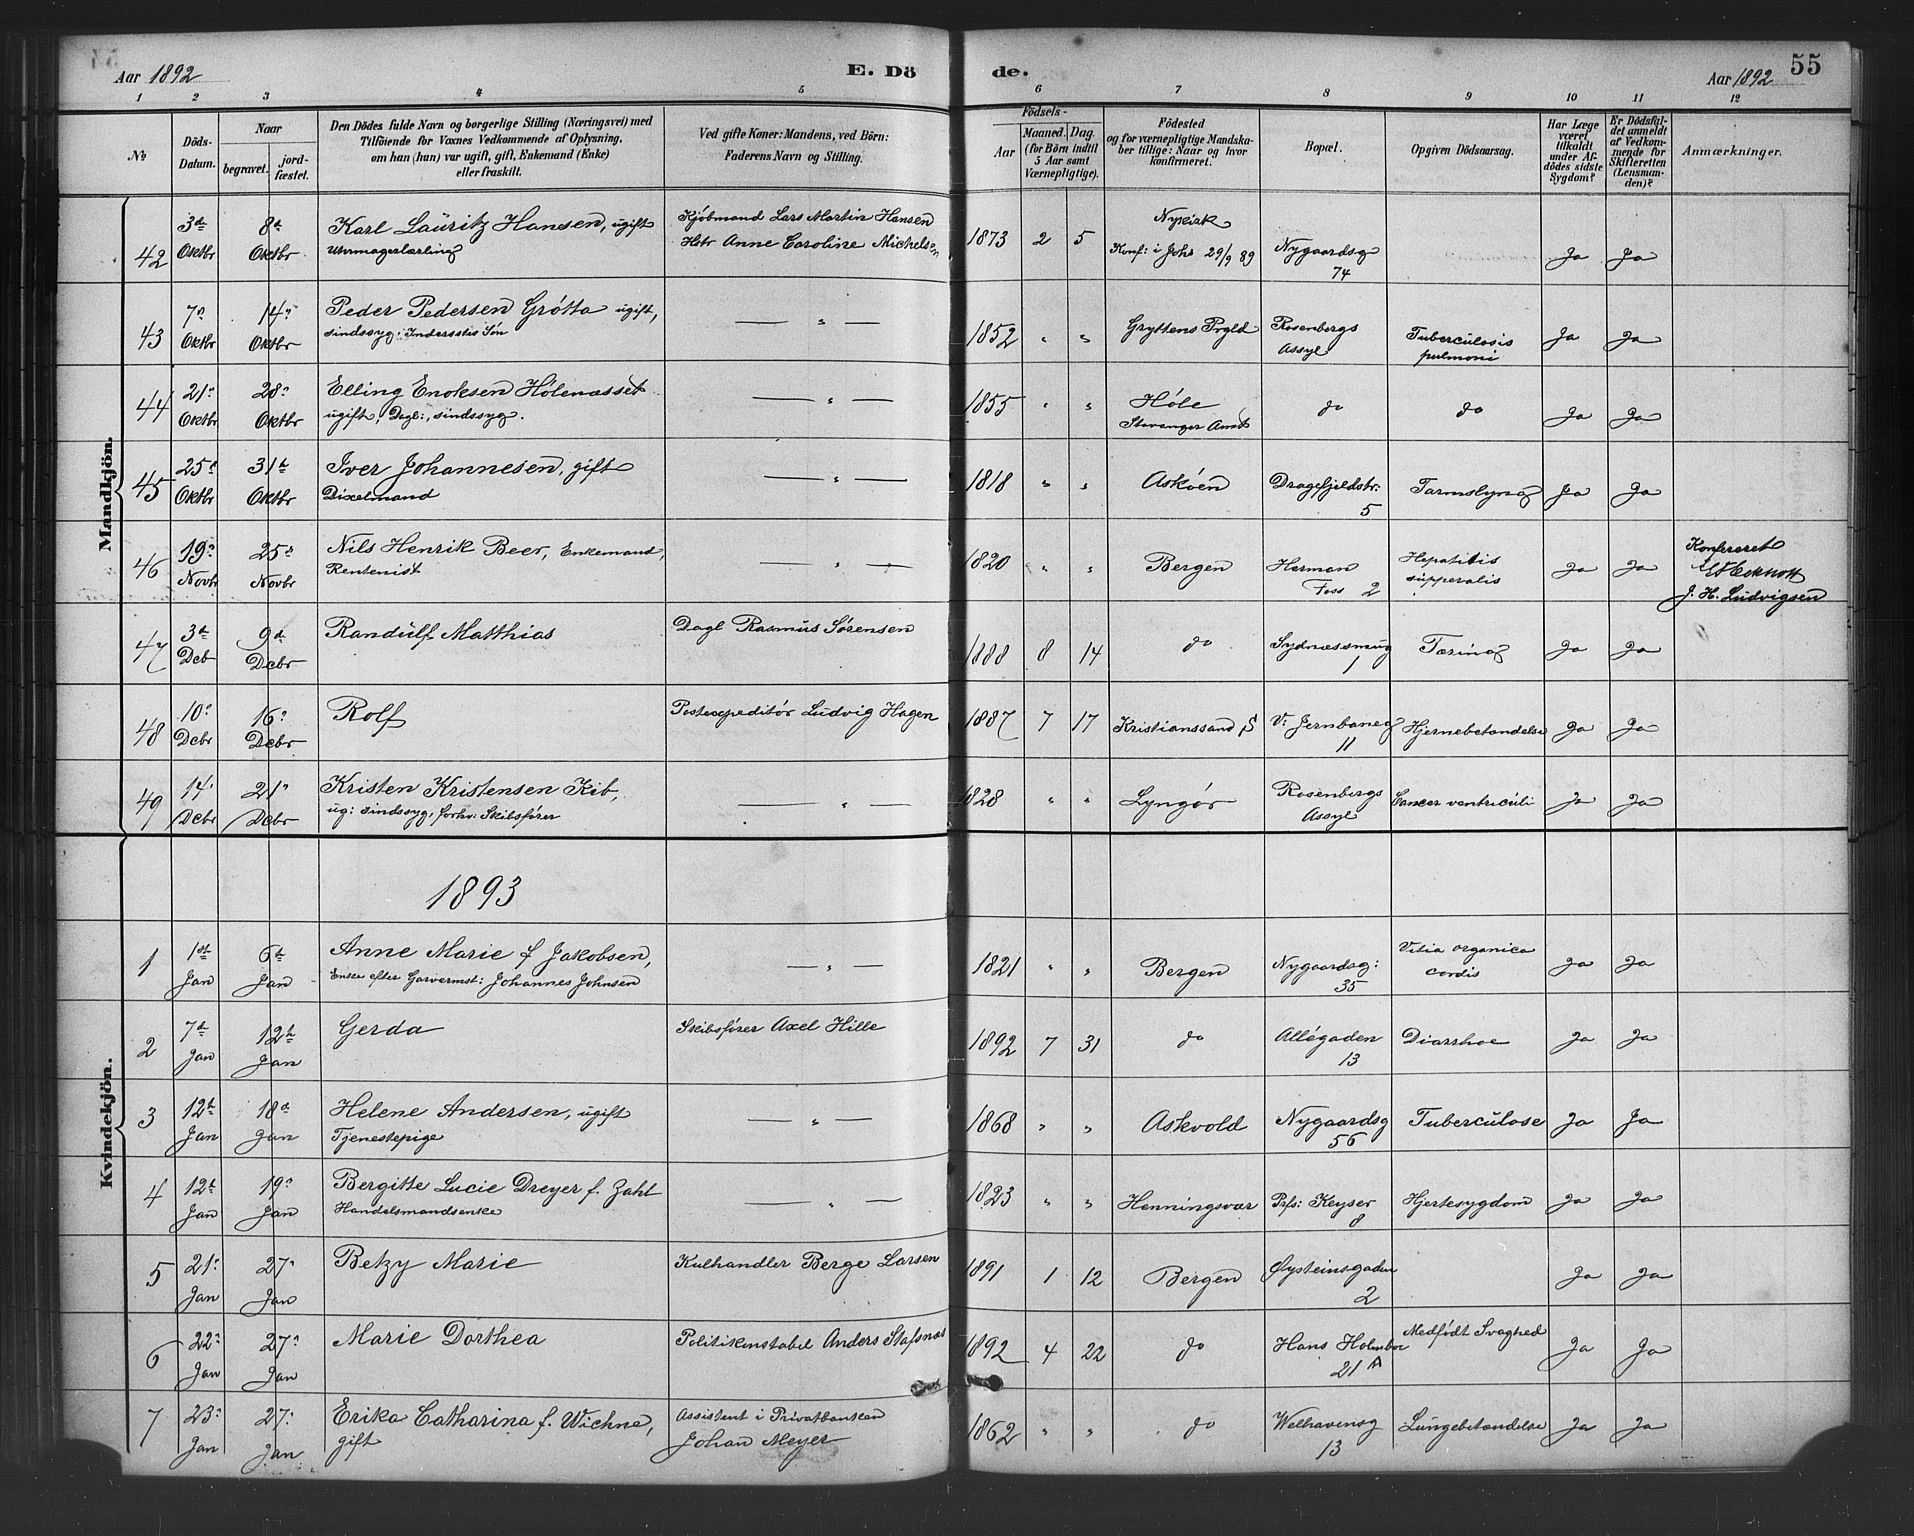 Aar 1892 E. Dö de. Aar 1892 55
1 2 3 4 5 6 7 8 9 10 11 12
No
Döds-Datum.
Naar
begravet.
jord-fæstet.
Den Dödes fulde Navn og borgerlige Stilling (Næringsvei) med
Tilföiende for Voxnes Vedkommende af Oplysning,
om han (hun) var ugift, gift, Enkemand (Enke)
eller fraskilt.
Ved gifte Koner: Mandens, ved Börn:
Faderens Navn og Stilling.
Födsels-
Aar
Maaned. Dag.
(for Börn indtil
5 Aar samt
Værnepligtige).
Födested
og for værnepligtige Mandska-
ber tillige: Naar og hvor
konfirmeret.
Bopæl.
Opgiven Dödsaarsag.
Har Læge
været
tilkaldt
under Af-
dödes sidste
Sygdom?
Er Dödsfal-
det anmeldt
af Vedkom-
mende for
Skifteretten
(Lensman-
den)?
Anmærkninger.
Mandkjön.
42 3die Oktbr 8de Oktbr Karl Lauritz Hansen, ugift Uhrmagerlærling Kjøbmand Lars Martin Hansen Hstr Anne Caroline Michelsen 1873 2 5 Nykirk Konf: i Johs 29/9 89 Nygaardsg 74 Ja Ja
43 7" Oktbr 14" Oktbr Peder Pedersen Grøtta ugift, sindssyg: Inderstis Søn — " — 1852 " " Gryttens Prgld Rosenbergs Assyl Tuberculosis pulmoni Ja Ja
44 21" Oktbr 28" Oktbr Elling Enoksen Hølenæsset ugift, Dagl:, sindssyg. — " — 1855 " " Høle Stavanger Amt do do Ja Ja
45 25" Oktbr 31te Oktbr Iver Johannesen, gift Dixelmand — " — 1818 " " Askøen Dragefjeldstr: 5 Tarmslyng Ja Ja
46 19" Novbr 25" Novbr Nils Henrik Beer, Enkemand, Rentenist — " — 1820 " " Bergen Herman Foss 2 Hepatitis supperalis Ja Ja Konfereret J. H. Ludvigsen
47 3die Dcb 9de Dcbr Randulf Matthias Dagl Rasmus Sørensen 1888 8 14 do Sydnæssmug 1 Tæring Ja Ja
48 10" Dcbr 16" Dcbr Rolf Postexpeditør Ludvig Hagen 1887 7 17 Kristianssand S V: Jernbaneg 11 Hjernebetændelse Ja Ja
49 14" Dcbr 21" Dcbr Kristen Kristensen Kib, ug: sindssyg, forhv: Skibsfører — " — 1828 " " Lyngør Rosenbergs Assyl Cancer ventriculi Ja Ja
1893
Kvindekjön.
1 1ste Jan 6te Jan Anne Marie f Jakobsen, Enke efter Garvermst: Johannes Johnsen — " — 1821 " " Bergen Nygaardsg: 35 Vitia organica cordis Ja Ja
2 7de Jan 12te Jan Gerda Skibsfører Axel Hille 1892 7 31 do Allégaden 13 Diarrhoe Ja Ja
3 12te Jan 18de Jan Helene Andersen, ugift Tjenestepige — " — 1868 " " Askvold Nygaardsg 56 Tuberculose Ja Ja
4 12te Jan 19" Jan Bergitte Lucie Dreyer f. Zahl Handelsmandsenke — " — 1823 " " Henningsvær Prfs: Keyser 8 Hjertesygdom Ja Ja
5 21" Jan 27" Jan Betzy Marie Kulhandler Berge Larsen 1891 1 12 Bergen Øysteinsgaden 2 Ja Ja
6 22" Jan 27" Jan Marie Dorthea Politikonstabel Anders Stafsnæs 1892 4 22 do Hans Holmboe 21 A Medfødt Svaghed Ja Ja
7 23" Jan 27" Jan Erika Catharina f. Wichne, gift Assistent i Privatbanken Johan Meyer 1862 " " do Welhavensg 13 Lungebetændelse Ja Ja